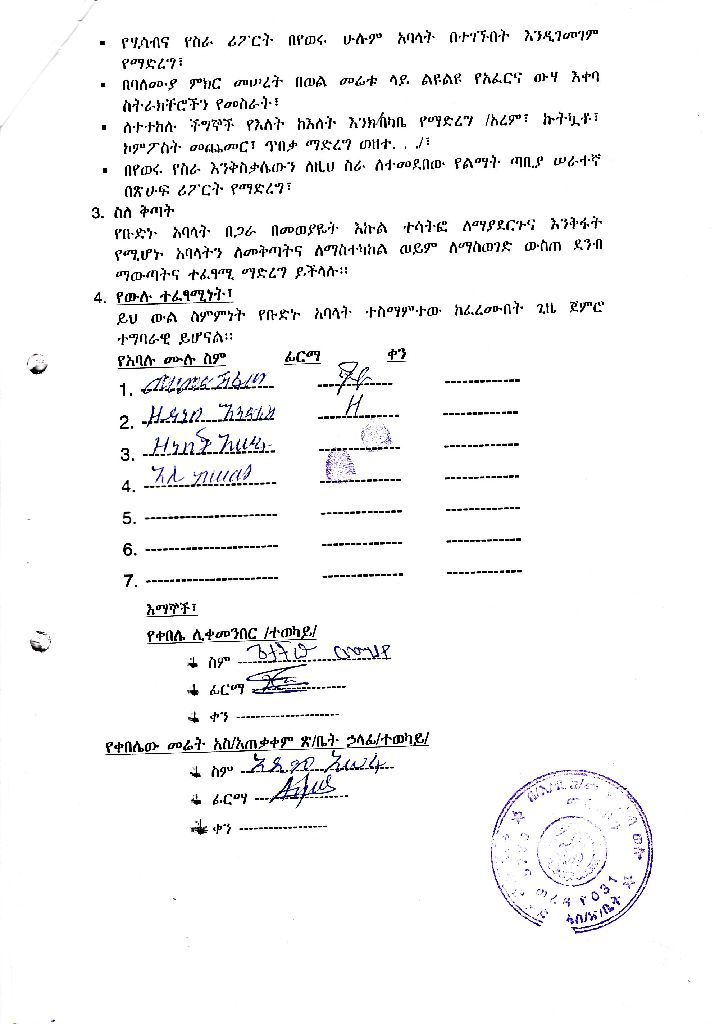 ▪ የሂሳብና የስራ ሪፖርት በየወሩ ሁሉም አባላት በተገኙበት እንዲገመገም
የማድረግ፣
▪ በባለሙያ ምክር መሠረት በወል መሬቱ ላይ ልዩልዩ የአፈርና ውሃ እቀባ
ስትራክቸሮችን የመስራት፣
▪ ለተተከሉ ችግኞች የእለት ከእለት እንክብካቤ የማድረግ /አረም፣ ኩትኳቶ፣
ኮምፖስት መጨመር፣ ጥበቃ ማድረግ ወዘተ. . ./፣
▪ በየወሩ የስራ እንቅስቃሴውን ለዚህ ስራ ለተመደበው የልማት ጣቢያ ሠራተኛ
በጽሁፍ ሪፖርት የማድረግ፣
3. ስለ ቅጣት
የቡድኑ አባላት በጋራ በመወያየት እኩል ተሳትፎ ለማያደርጉና እንቅፋት
የሚሆኑ አባላትን ለመቅጣትና ለማስተካከል ወይም ለማስወገድ ውስጠ ደንብ
ማውጣትና ተፈፃሚ ማድረግ ይችላሉ።
4. የውሉ ተፈፃሚነት፣
ይህ ውል ስምምነት የቡድኑ አባላት ተስማምተው ከፈረሙበት ጊዜ ጀምሮ
ተግባራዊ ይሆናል።
የአባሉ ሙሉ ስም ፊርማ ቀን
1.
2. H
3.
4.
5.
6.
7.
እማኞች፣
የቀበሌ ሊቀመንበር /ተወካይ/
ስም
ፊርማ
ቀን
የቀበሌው መሬት አስ/አጠቃቀም ጽ/ቤት ኃላፊ/ተወካይ/
ስም
ፊርማ
ቀን